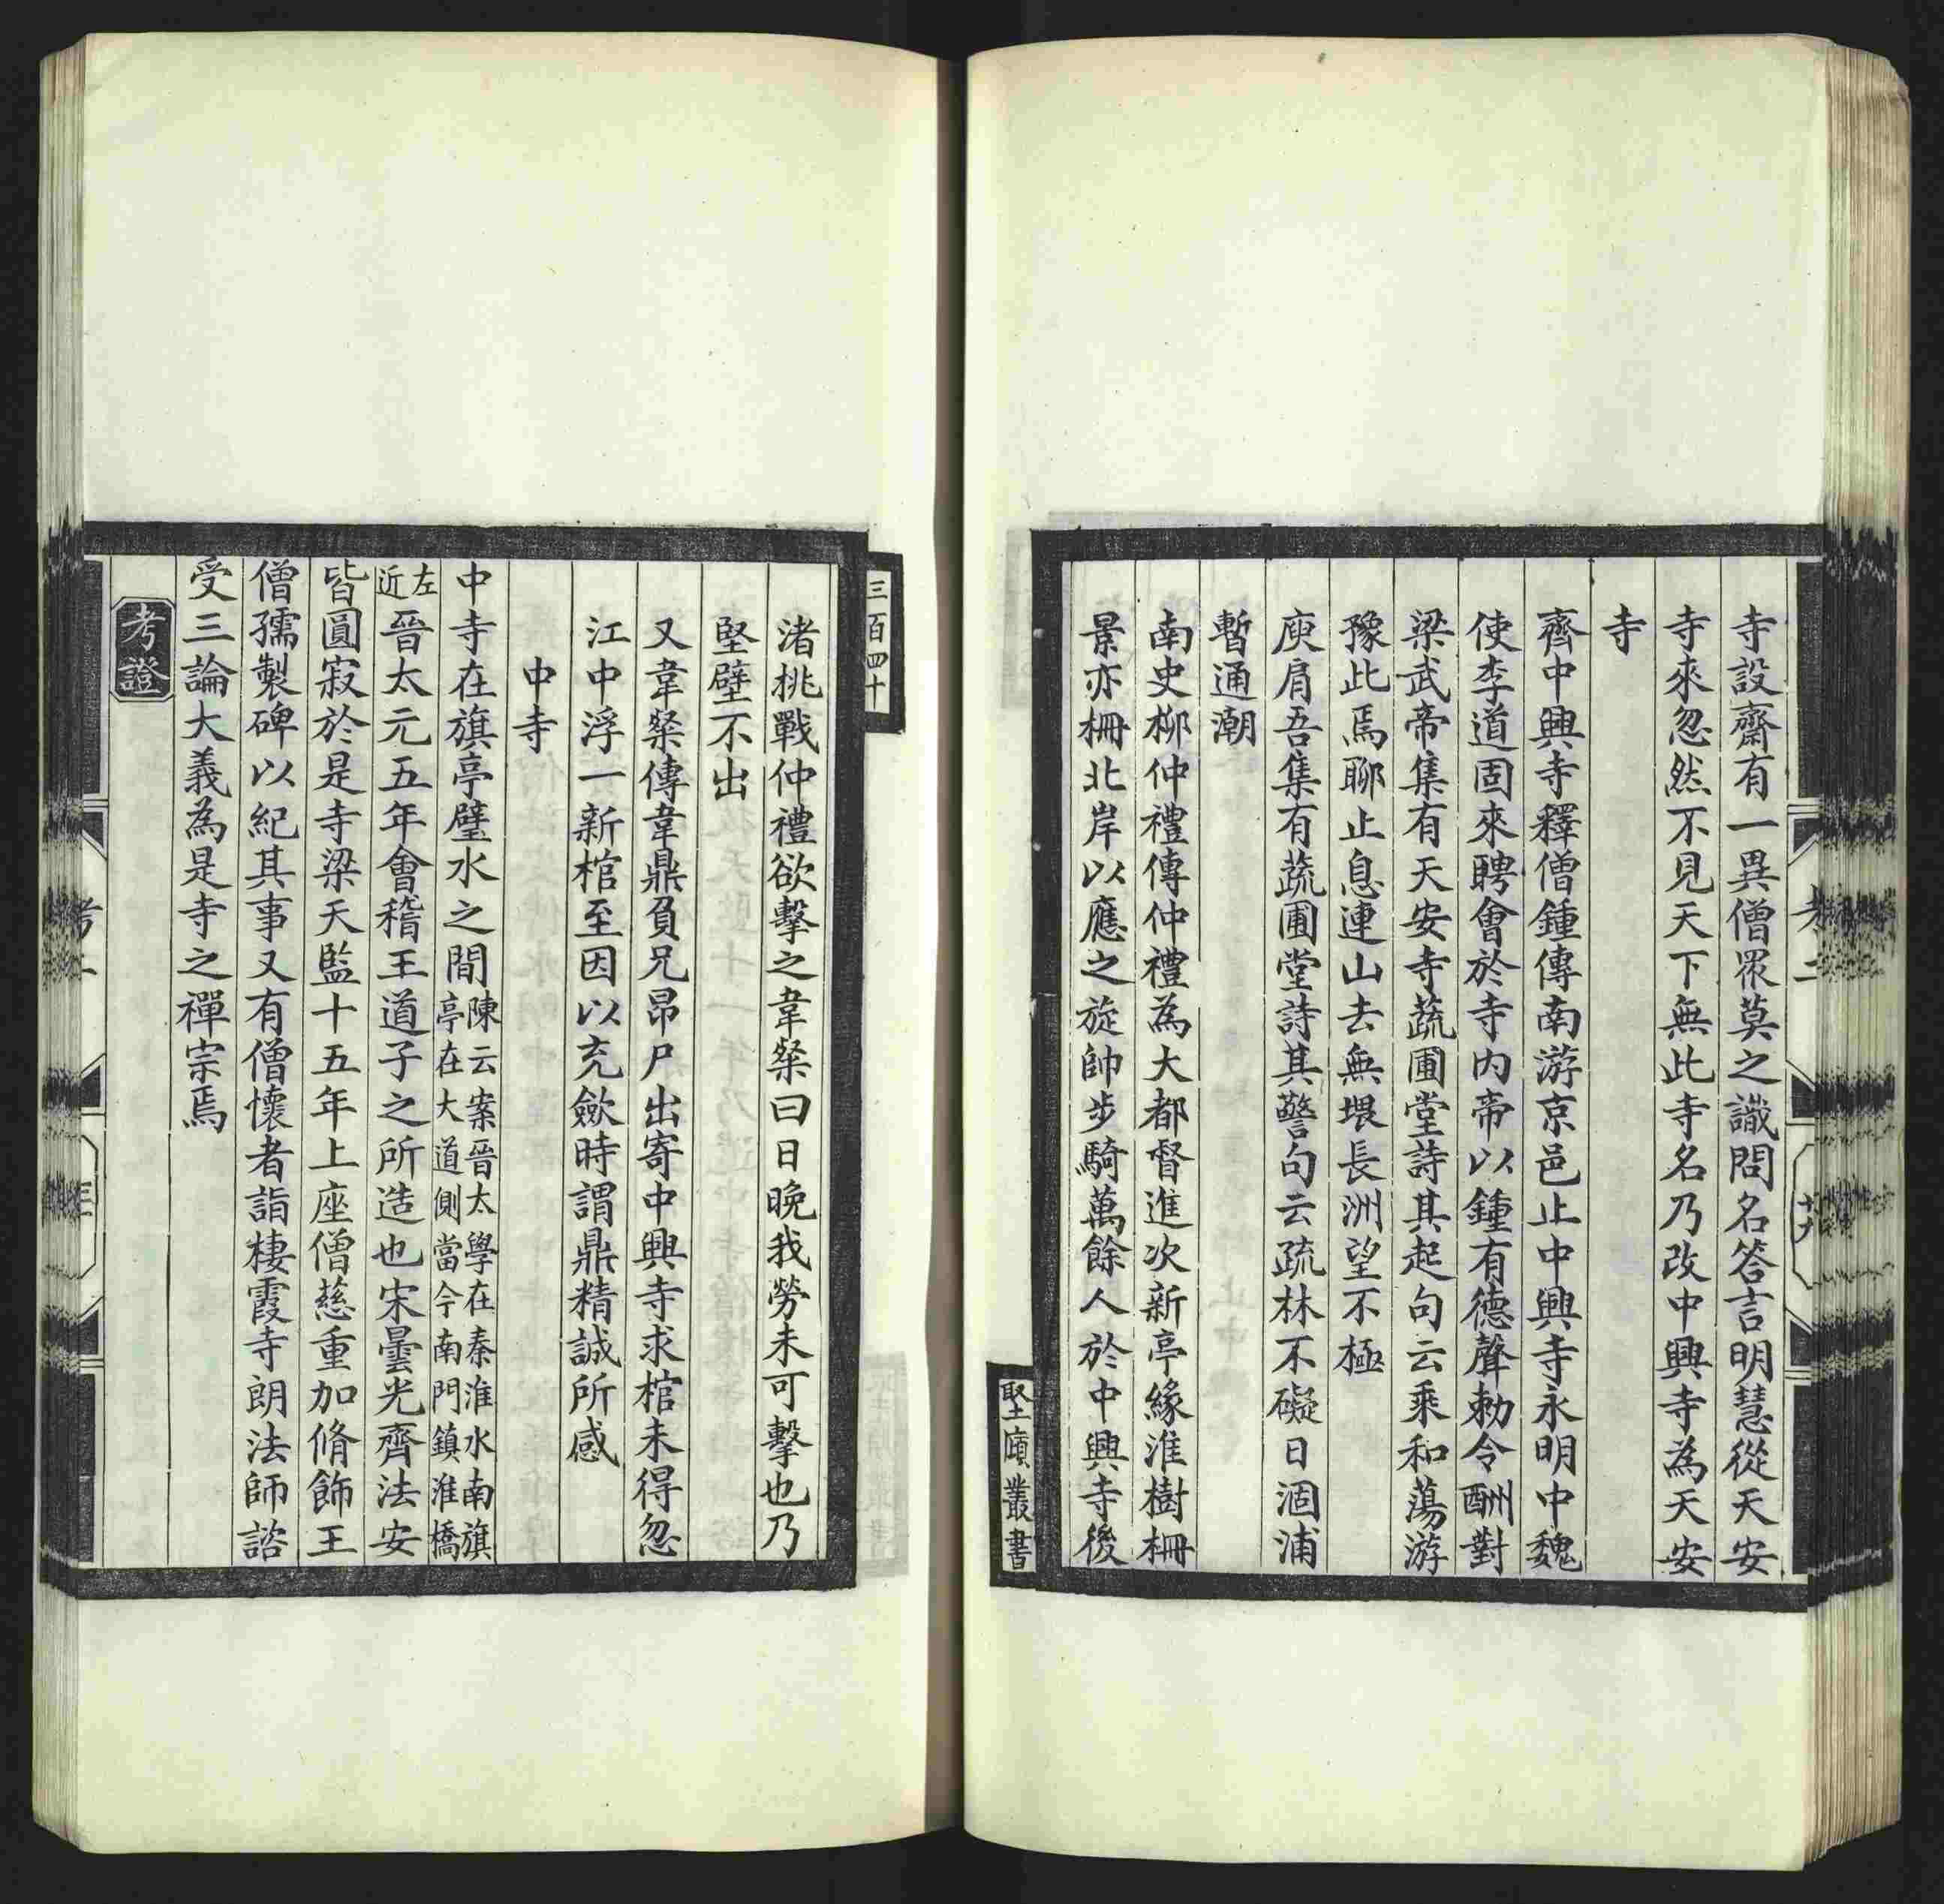 寺設齋有一異僧眾莫之識問名答言明慧從天安
寺來忽然不見天下無此寺名乃改中興寺為天安
寺
齊中興寺釋僧鍾傳南游京邑止中興寺永明中魏
使李道固來聘會於寺內帝以鍾有德聲勅令酬對
梁武帝集有天安寺蔬圃堂詩其起句云乘和蕩游
豫此焉聊止息連山去無垠長洲望不極
庾肩吾集有蔬圃堂詩其警句云疏林不礙日涸浦
暫通潮
南史柳仲禮傳仲禮為大都督進次新亭緣淮樹柵
景亦柵北岸以應之旋帥步騎萬餘人於中興寺後
堅䫖叢書
三百四十
渚挑戰仲禮欲擊之韋粲曰日晚我勞未可擊也乃
堅壁不出
又韋粲傳韋鼎負兄昂尸出寄中興寺求棺未得忽
江中浮一新棺至因以充歛時謂鼎精誠所感
中寺
中寺在旗亭璧水之間陳云案晉太學在秦淮水南旗亭在大道側當今南門鎮淮橋
左近晉太元五年會稽王道子之所造也宋曇光齊法安
皆圓寂於是寺梁天監十五年上座僧慈重加脩飾王
僧孺製碑以紀其事又有僧懷者詣棲霞寺朗法師諮
受三論大義為是寺之禪宗焉
考證